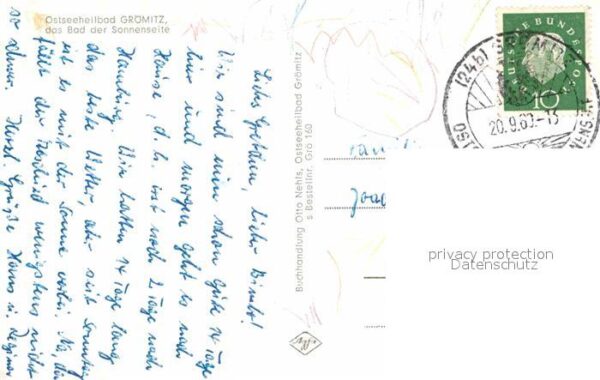 Ostseeheilbad GRÖMITZ,
das Bad der Sonnenseite
Liebe Gretchen, lieber Bimbo!
Wir sind nun schon gute 14 Tage
hier und morgen geht es nach
Hause, d. h. erst noch 2 Tage nach
Hamburg. Wir hatten 14 Tage lang
das beste Wetter, aber seit Sonntag
ist es mit der Sonne vorbei. Na, da
fällt der Abschied wenigstens nicht
so schwer. Herzl. Grüße Hanns u.
Buchhandlung Otto Nehls, Ostseeheilbad Grömitz
s Bestellnr. Grö 160
DEUTSCHE BUNDESPOST
10
(24b) GRÖMITZ
20.9.60.-13
OST
Familie
Joa
privacy protection
Datenschutz